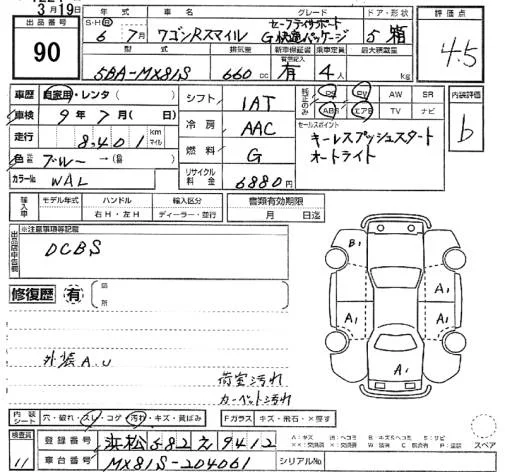 3月19日
出品番号 90
年式 S・H・R 6年 7月
車名 ワゴンRスマイル
グレード セーフティサポート
G快適パッケージ
ドア・形状 5 箱
評価点 4.5
型式 5BA-MX81S
排気量 660 cc
新車保証書 有無記入 有
乗車定員 4人
最大積載量 kg
車歴 自家用・レンタ( )
車検 9年 7月( 日)
走行 8,401 km マイル
色 ブルー →( 色)
カラーNo WAL
シフト 1AT
冷房 AAC
燃料 G
リサイクル料金 6880円
純正のみ PS PW AW SR
ABS エアB TV ナビ
内装評価 b
セールスポイント
キーレスプッシュスタート
オートライト
輸入車 モデル年式 ハンドル 右H・左H 輸入区分 ディーラー・並行
書類有効期限 月 日迄
出品店申告欄 ※注意事項等記載
DCBS
修復歴 有( 箇所 )
B1
A1
A1
A1
A1
外装A.U
荷室汚れ
カーペット汚れ
内装シート 穴・破れ・スレ・コゲ・汚れ・キズ・黄ばみ
Fガラス キズ・飛石・×要す
検査員 11
登録番号 浜松582え9412
車台番号 MX81S-204061
シリアルNo
A:キズ
スペア